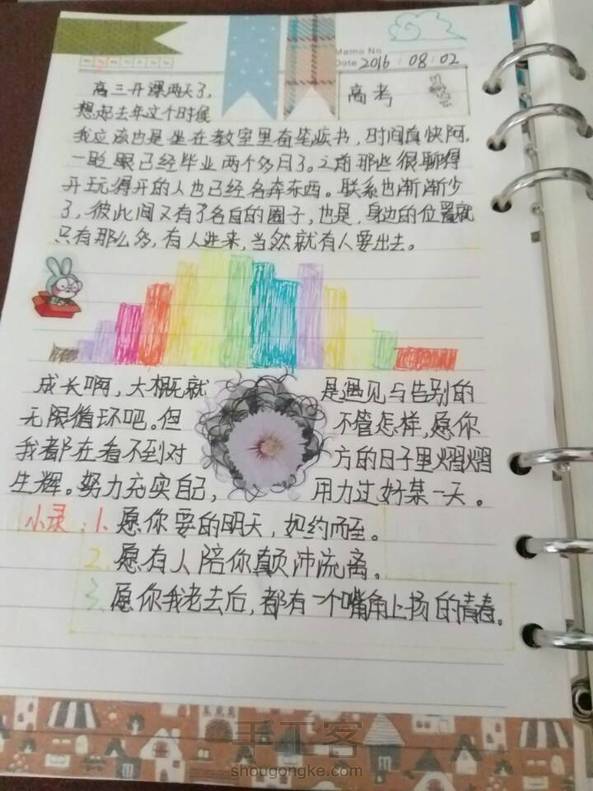 Memo No.
Date 2016 : 08 : 02
高考
高三开课两天了,
想起去年这个时候
我应该也是坐在教室里奋笔疾书,时间真快阿,
一眨眼已经毕业两个多月了。之前那些很聊得
开玩得开的人也已经各奔东西。联系也渐渐少
了,彼此间又有了各自的圈子,也是,身边的位置就
只有那么多,有人进来,当然就有人要出去。
成长啊,大概就是遇见与告别的
无限循环吧。但不管怎样,愿你
我都在看不到对方的日子里熠熠
生辉。努力充实自己,用力过好某一天。
小录:1. 愿你要的明天,如约而至。
2. 愿有人陪你颠沛流离。
3. 愿你我老去后,都有一个嘴角上扬的青春。
手工客
shougongke.com